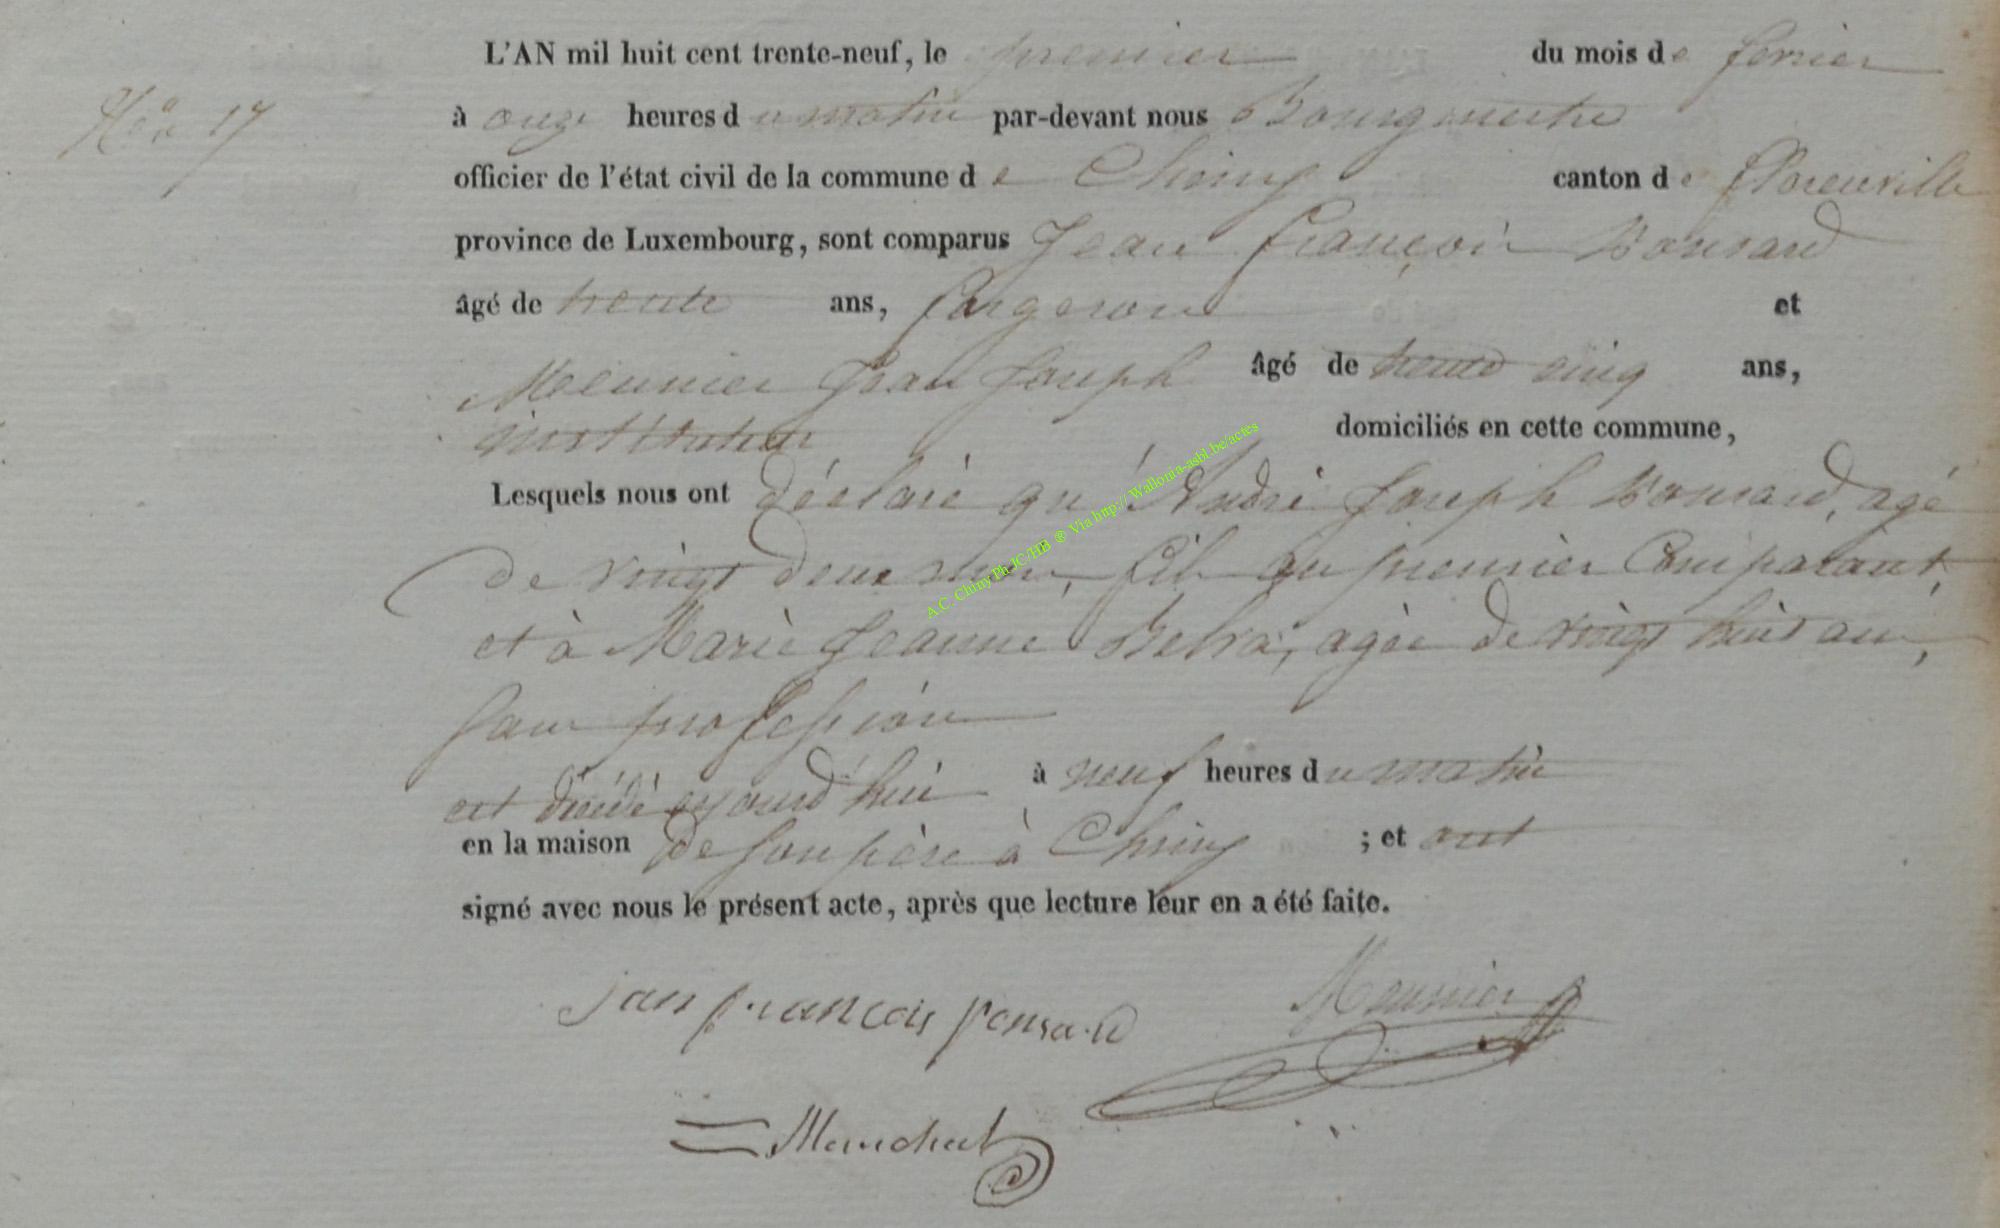 L'AN mil huit cent trente-neuf, le premier du mois de fevrier
No 17
à onze heures du matin par-devant nous Bourgmestre
officier de l'état civil de la commune de Chiny canton de florenville
province de Luxembourg, sont comparus Jean françois Ponsard
âgé de trente ans, forgeron et
Meunier Jean Joseph âgé de trente cinq ans,
instituteur domiciliés en cette commune,
Lesquels nous ont déclaré qu'André Joseph Ponsard, agé
de vingt deux mois, fils du premier Comparant,
et à Marie Jeanne agée de vingt huit ans,
sans profession
est décédé aujourd'hui à neuf heures du matin
en la maison de son père à Chiny ; et ont
signé avec nous le présent acte, après que lecture leur en a été faite.
jan francois ponsard Meunier
A.C. Chiny Ph JC/HB ® Via http:// Wallonia-asbl.be/actes